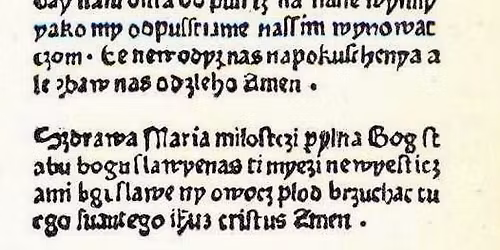 yako my odpuſſciame naſſim wynowac
czom · Ee newodyz nas napokuſchenya a
le zbaw nas odzleho Amen .
Szdrawa Maria miloſtczi pylna Bog ſt
abu boguſlawyenas ti myezi newyeſticz
ami bgiſlawe ny owocz plod brzuchac tu
ego ſuantego ihuz criſtus Amen .